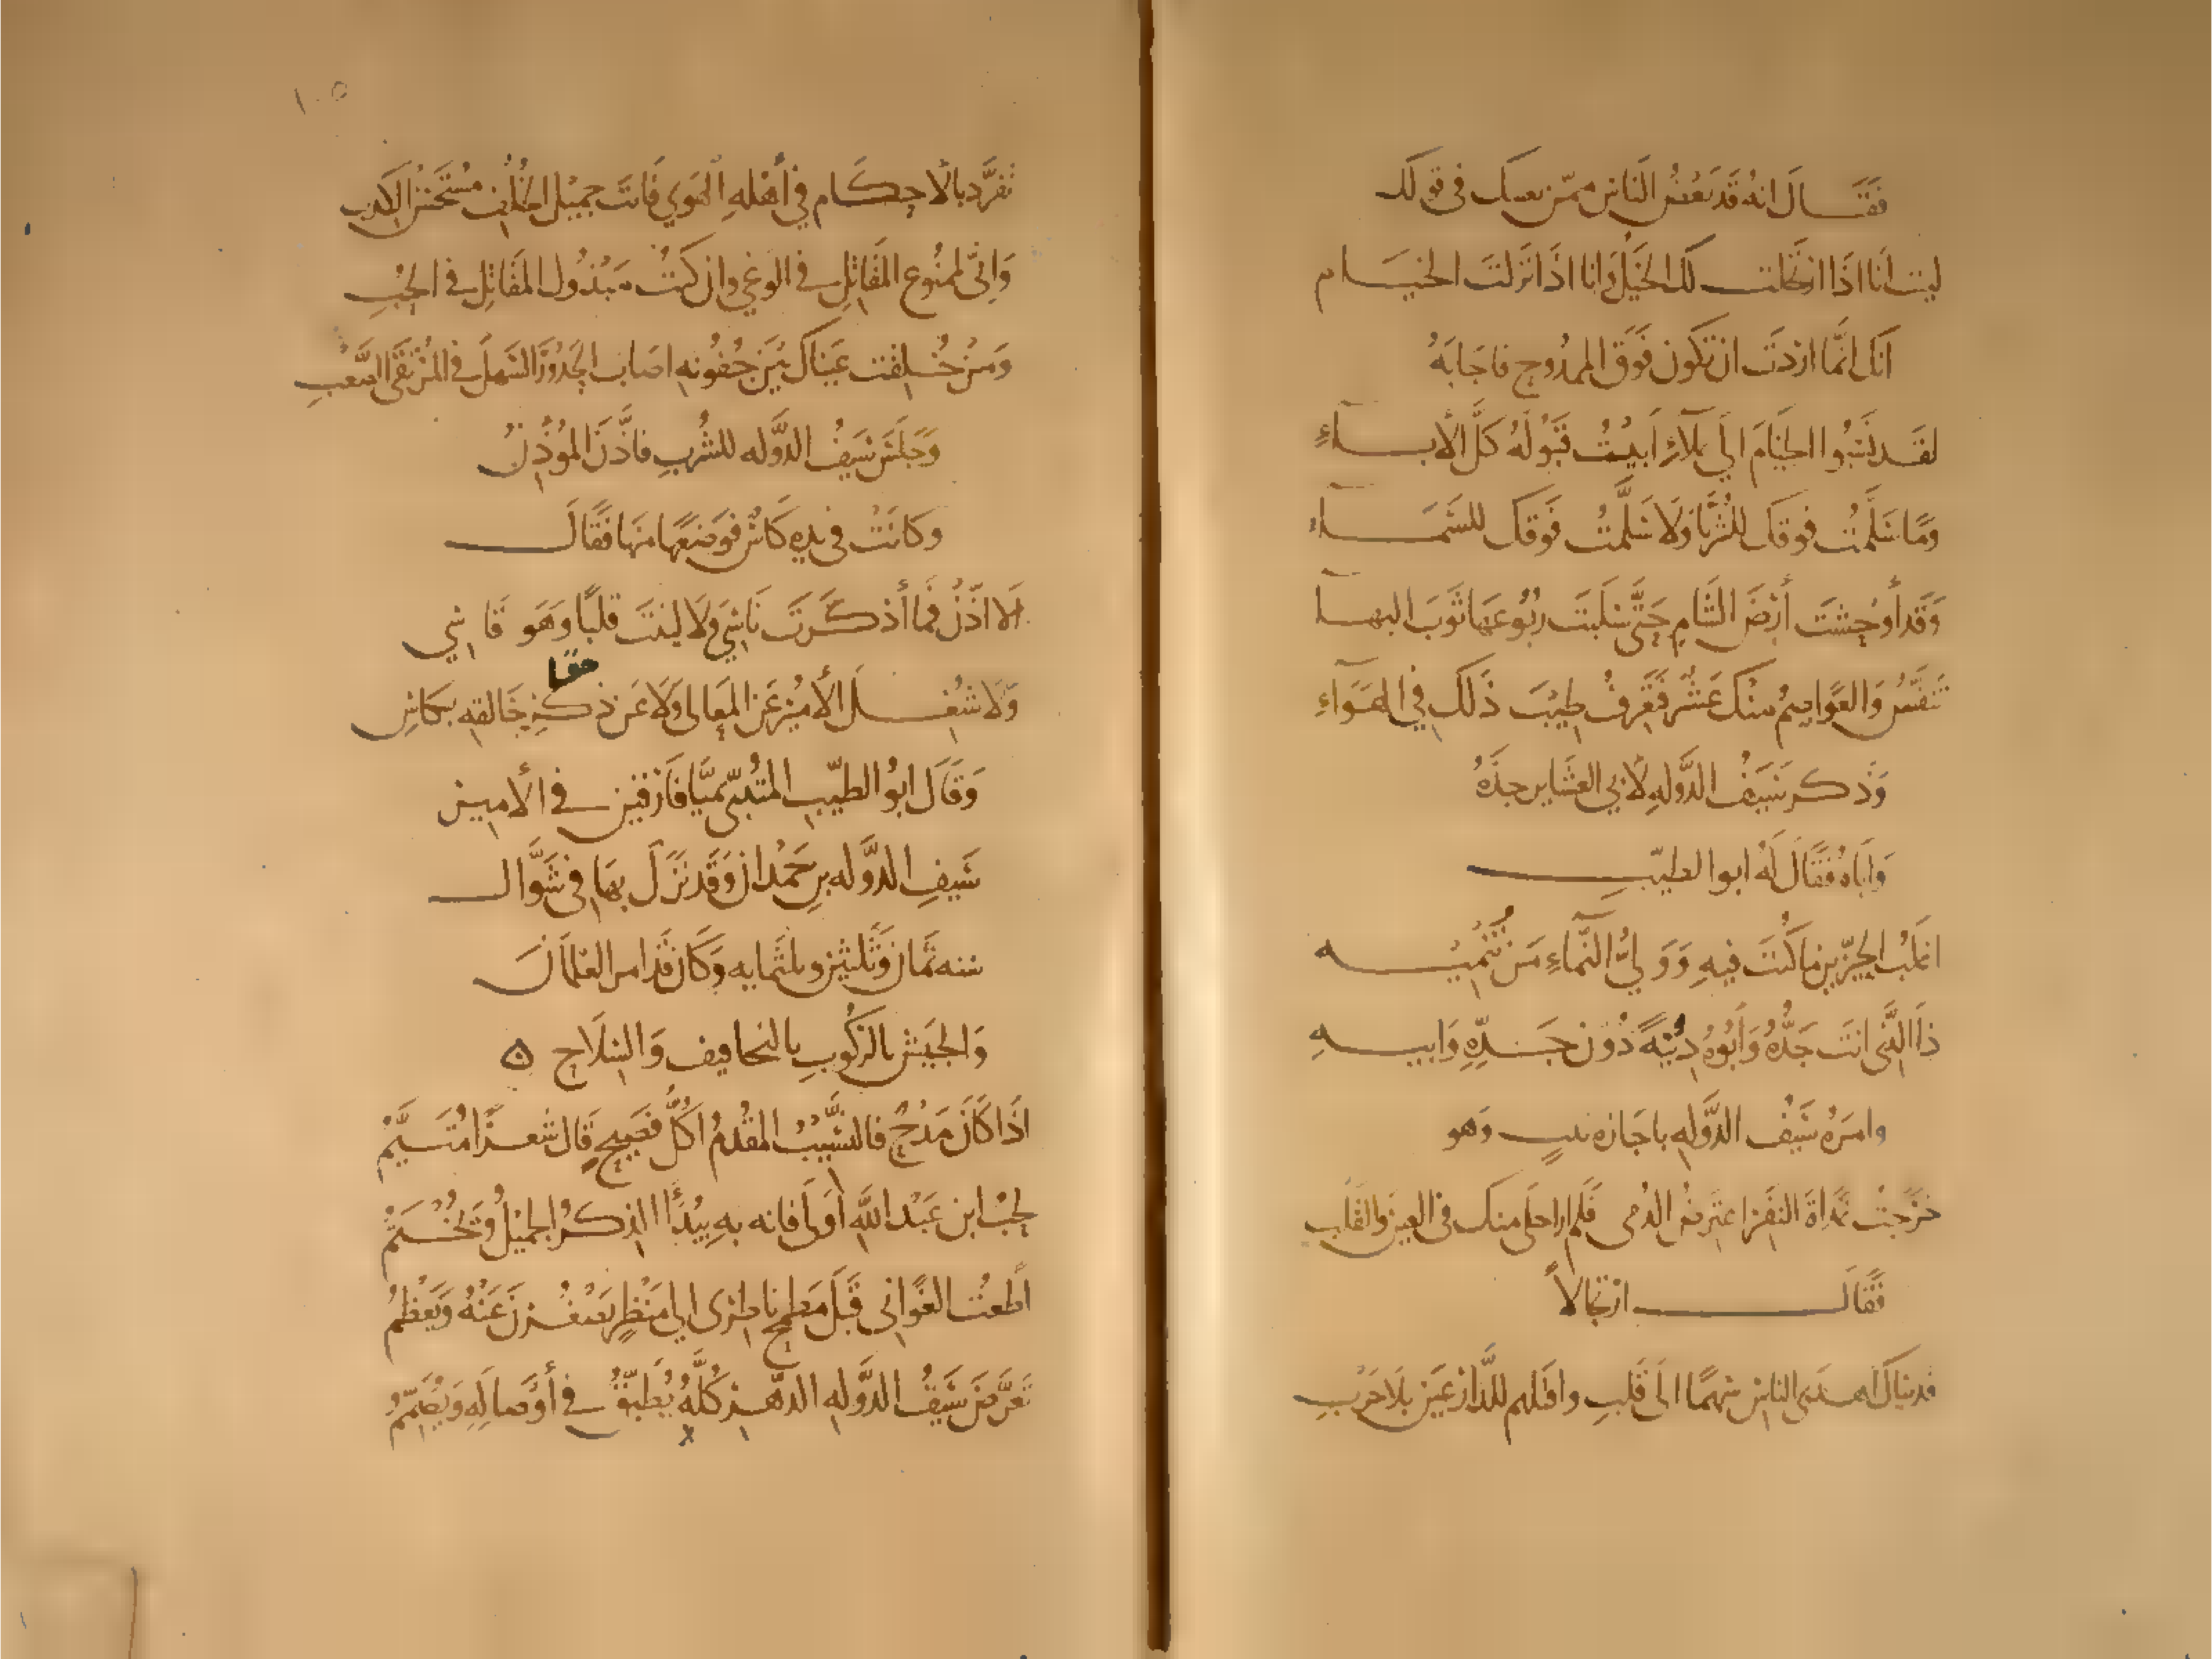 فَقَالَ انهُ قَد بَعْضُ النَاسِ ممّن في قولك
ليت انَا اذَا ارتحَلت لكَ الخَيْلُ وَانا اذَا نَزلتَ الخيَام
انكَ انَّما اردتَ ان تكون فَوقَ الممدُوح فاجَابَهُ
لقَد نَسَبُوا الخيَامَ الَى عَلآءٍ اَبَيْتُ قَبُولَهُ كلَّ الأبآءِ
وَمَا سَلَّمْتُ فوقكَ للثُرَيَا وَلَا سَلَّمْتُ فَوقكَ للسَّمَآءِ
وَقَد أَوحَشتَ أَرْضَ الشَّامِ حَتَّى سَلَبتَ رُبُوعَهَا ثَوبَ البهآ
تَنَفَّسُ وَالعَوَاصِمُ مِنْكَ عَشْرٌ فَتَعْرِفُ طِيْبَ ذَلكَ فِي الهَوَآءِ
وَذكر سَيفُ الدَّولهِ لأبي العَشَاير جدَّهُ
وَابَاهُ فَقَالَ لَهُ ابوا الطيّبِ
اغلَبُ الحيّزَينِ مَا كُنْتَ فيهِ وَوَلِيُّ النَّمَآءِ مَن تُنْمِيْهِ
ذَا الَّذِي انتَ جَدُّهُ وَأَبُوهُ دِنْيَةً دُون جَدِّهِ وَابيهِ
وامَرَهُ سَيفُ الدَّولهِ باجَازه بيتٍ وَهو
خرَجتُ غَدَاةَ النَفْرِ اعتَرِضُ الدُمى فَلم ار احلَى منك في العينِ وَالقَلبِ
فَقَالَ ارتجَالاً
فديناكَ اهدَى الناسِ سَهمًا الى قَلبِ واقتلهم للدَّارعينَ بلَا حَرْبِ
١٠٥
تَفَرَّد بالأحكام في أَهْلِهِ الهَوى فَانتَ جميْل الخُلْفِ مُستَحْسَنُ الكَذبِ
وَانّى لممْنُوع المَقَاتِلِ في الوغى وان كنتُ مَبْذُول المَقَاتِلِ في الحُبِّ
وَمَنْ خُلِقت عَيناكَ بَيْنَ جُفُونِهِ اصَابَ الحَدُورَ السَهلَ في المُرْتَقَى الصَّعْبِ
وَجَلَسَ سَيفُ الدَّوله للشُربِ فاذَّنَ المؤذِنُ
وَكانَتْ في يدهِ كَاسٌ فوَضعَهَا منهَا فقَالَ
الَا اذِّنْ فمَا أَذكَرتَ نَاسِي وَلَا لينتَ قلبًا وَهَو قَاسِي
وَلَا شُغِلَ الأَمِيْرُ عَنِ المعَالى وَلَا عَن ذكرِ خَالقِهِ بكَاسِ
حقا
وَقَالَ ابُو الطيّبِ المتُنبّي بميَّافارقين في الأمير
سَيفِ الدَّوله بنِ حَمْدان وَقَد نَزَلَ بهَا في شَوَّال
سنه ثَمَان وَثَلثين وثلثمايه وَكَان قَد امر الغلمَانَ
وَالجَيشَ بالرُكُوبِ بالتجافيف وَالسِلَاح ٥
اذَا كَانَ مَدْحٌ فالنَّسِيْبُ المقَدَّمُ اكُلُّ فَصِيحٍ قَال شعرًا مُتَيَّمُ
لحُبُّ ابن عَبْد اللَّهِ اَولَى فَانه بهِ يُبْدَأ الذكرُ الجَميْلُ وَيُخْتَمُ
اَطَعتُ الغَوَاني قَبلَ مَطمَحِ نَاظِرِى الى مَنْظَرٍ يَصْغُرنَ عَنْهُ وَيَعْظُمُ
تَعَرَّضَ سَيفُ الدَّولهِ الدَّهرَ كُلَّهُ يُطَبّقُ في أَوْصَالِهِ وَيُصَمِّمُ